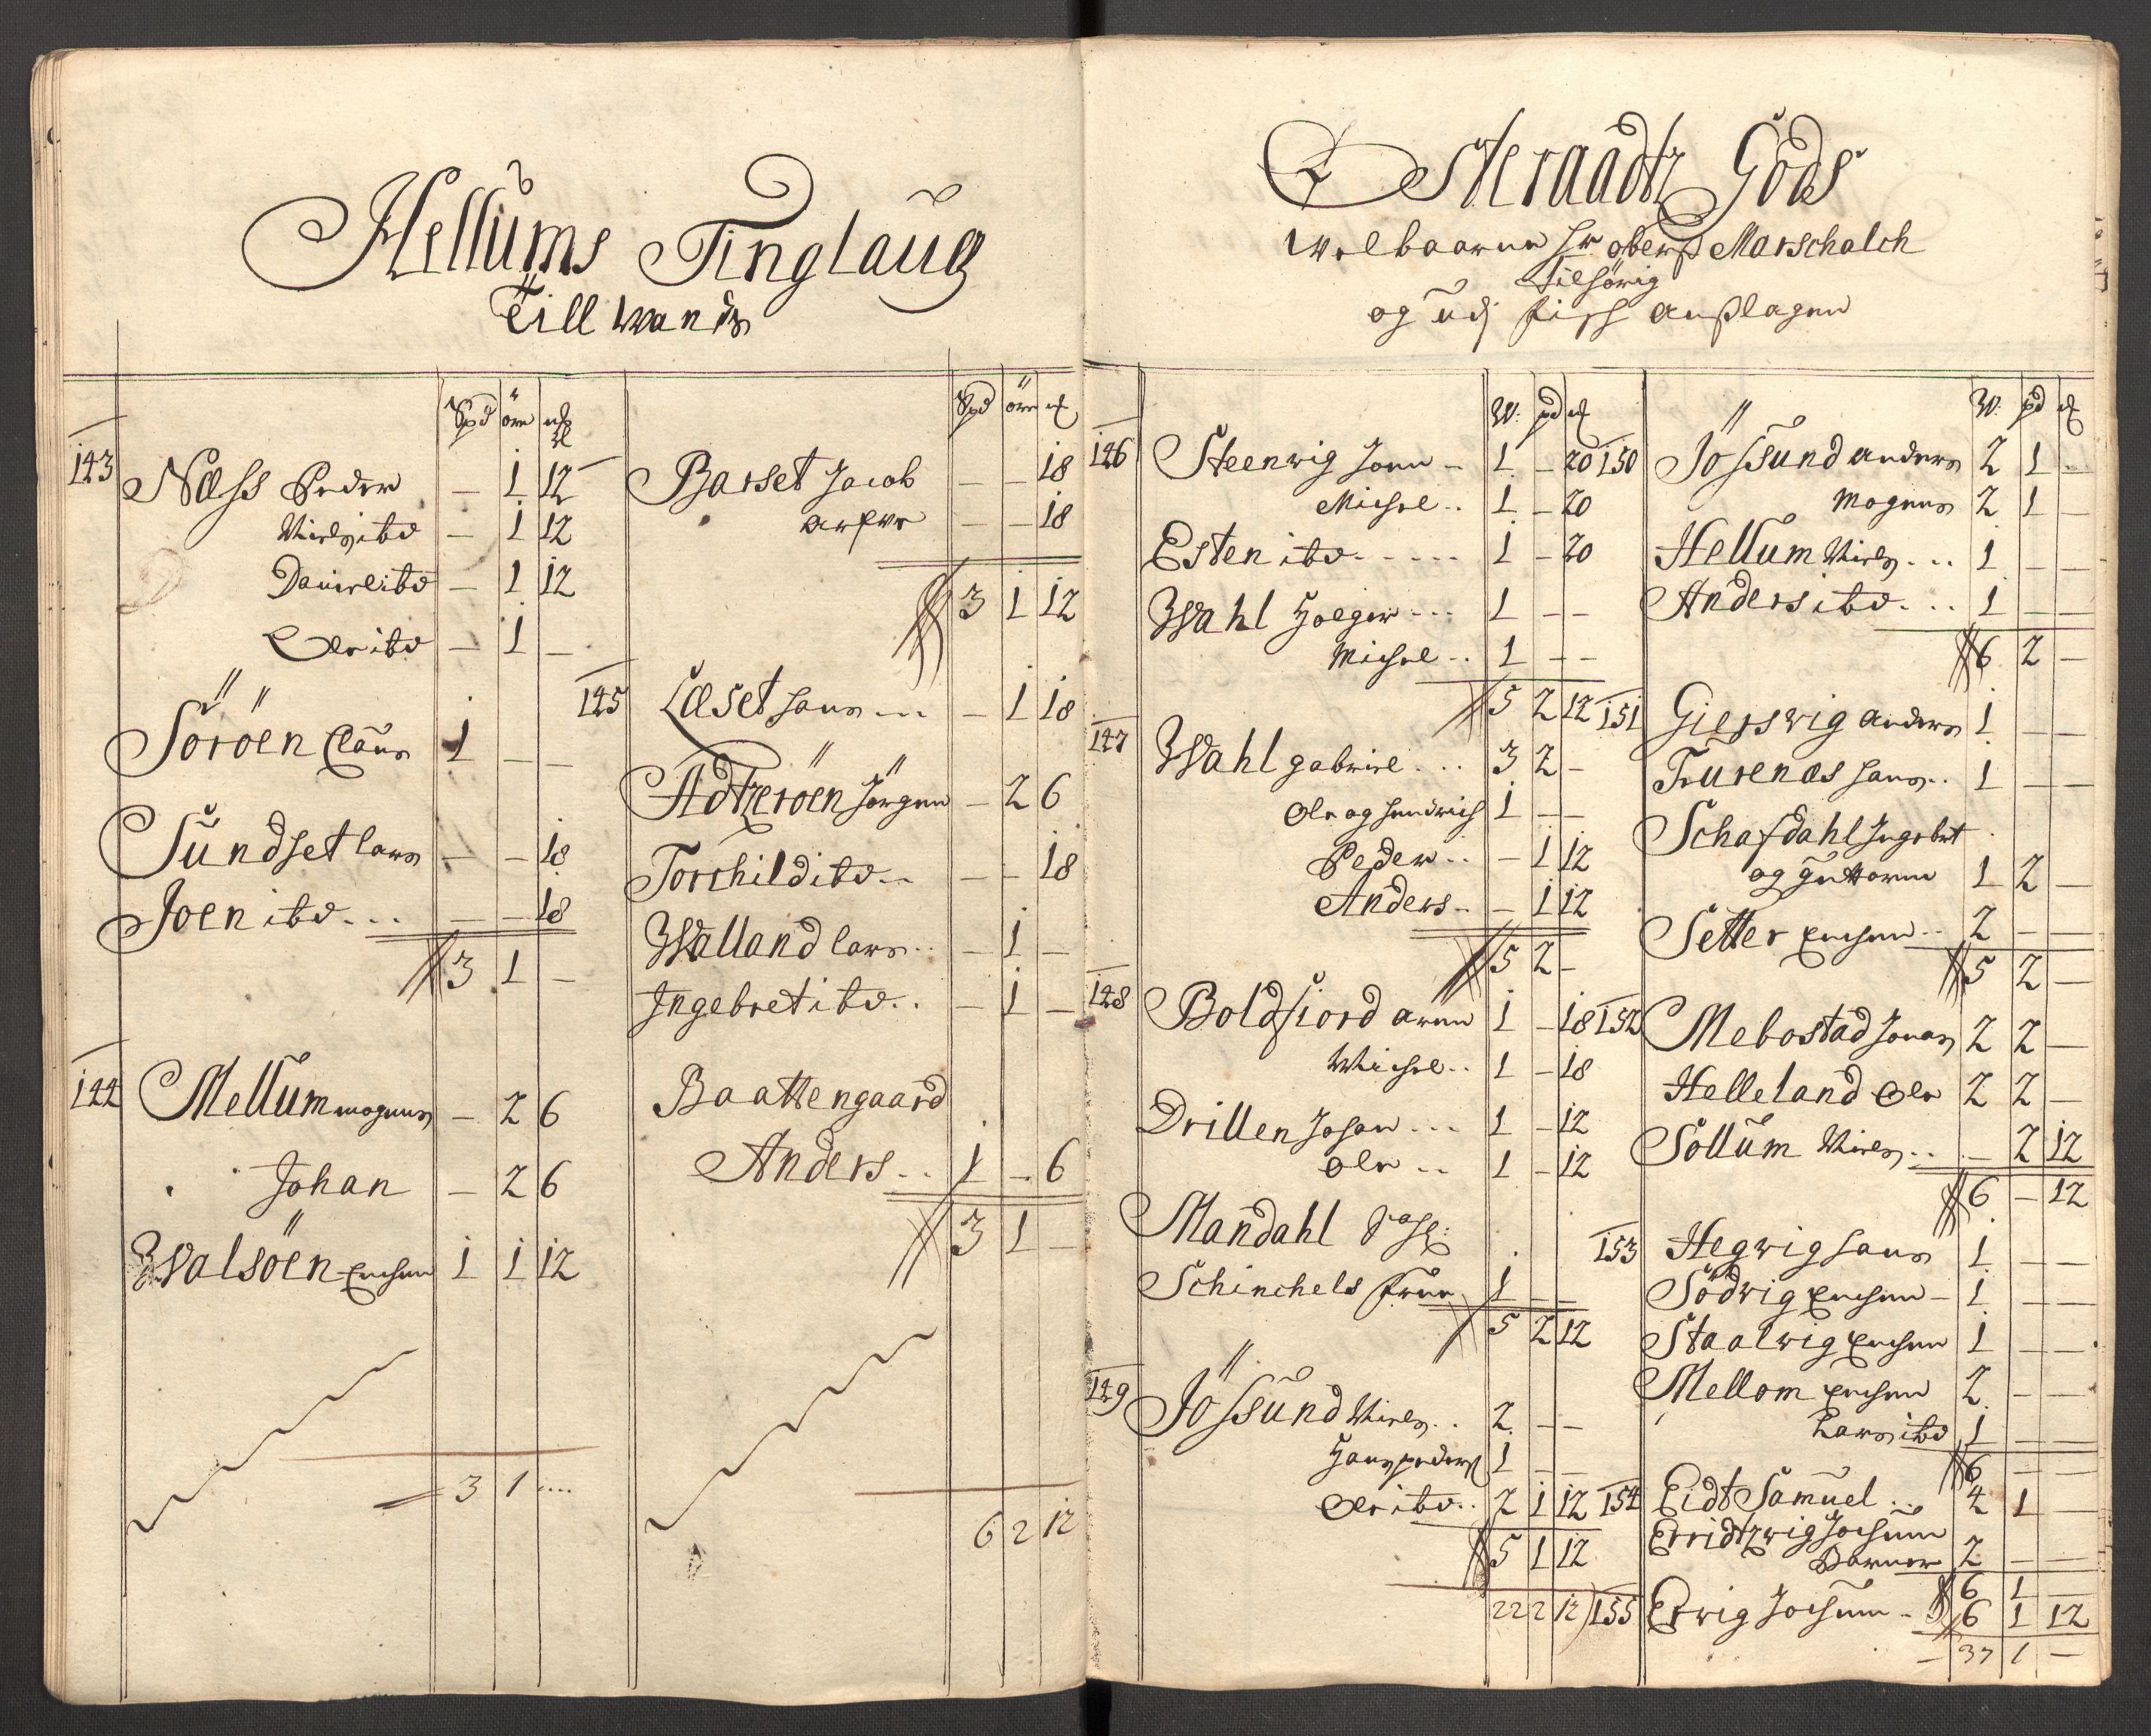 Hellums Tinglaug
Till wands
Spd öre mk
143 Næss Peder — 1 12
Nielsitd — 1 12
Danielitd — 1 12
Oleitd — 1 —
Söröen Claus 1 — —
Sundset lars — — 18
Joen itd — — 18
3 1 —
144 Mellum mogens — 2 6
Johan — 2 6
Walsöen Erichen 1 1 12
3 1
Spd öre
Barset Jacob — — 18
— — 18
3 1 12
145 Læset hans — 1 18
Adtzeröen Jörgen — 2 6
Torchild itd — — 18
Walland lars — 1 —
Ingebret itd — 1 —
Baattengaard
Anders 1 — 6
3 1 —
6 2 12
Østeraadtz Gods
Welbaarne hr oberst Marschalch
tilhörig
og udj fisch anslagen
W: pd
146 Steenwig Joen 1 — 20
Michel 1 — 20
Esten itd 1 — 20
Wahl Holger 1 — —
Michel 1 — —
5 2 12
147 Wahl gabriel 3 2 —
Ole og hendrich 1 — —
Peder — 1 12
Anders — 1 12
5 2 —
148 Boldfiord arne 1 — 18
Michel 1 — 18
Drillen Johan 1 — 12
Ole 1 — 12
Mandahl
Schinchels 1 — —
5 2 12
149 Jössund Niels 2 — —
Hans peders 1 — —
Ole itd 2 1 12
5 1 12
22 2 12
W: pd
150 Jössund anders 2 1 —
Mogens 2 1 —
Hellum Niels 1 — —
Anders itd 1 — —
6 2 —
151 Gierswig anders 1 — —
Furenæs hans 1 — —
Schafdahl Ingebret
og guttorm 1 2 —
Setter Erichen 2 — —
5 2 —
152 Mebostad Jonas 2 2 —
Helleland Ole 2 2 —
Sollum Niels — 2 12
6 — 12
153 Hegwig hans 1 — —
Södwig Erichen 1 — —
Staalwig Erichen 1 — —
Mellom Erichen 2 — —
Lars itd 1 — —
6 — —
154 Eidt Samuel 4 1 —
Erridtzwig Jochum
Værner 2 — —
6 1 —
155 Erwig Jochum 6 1 12
37 1 —